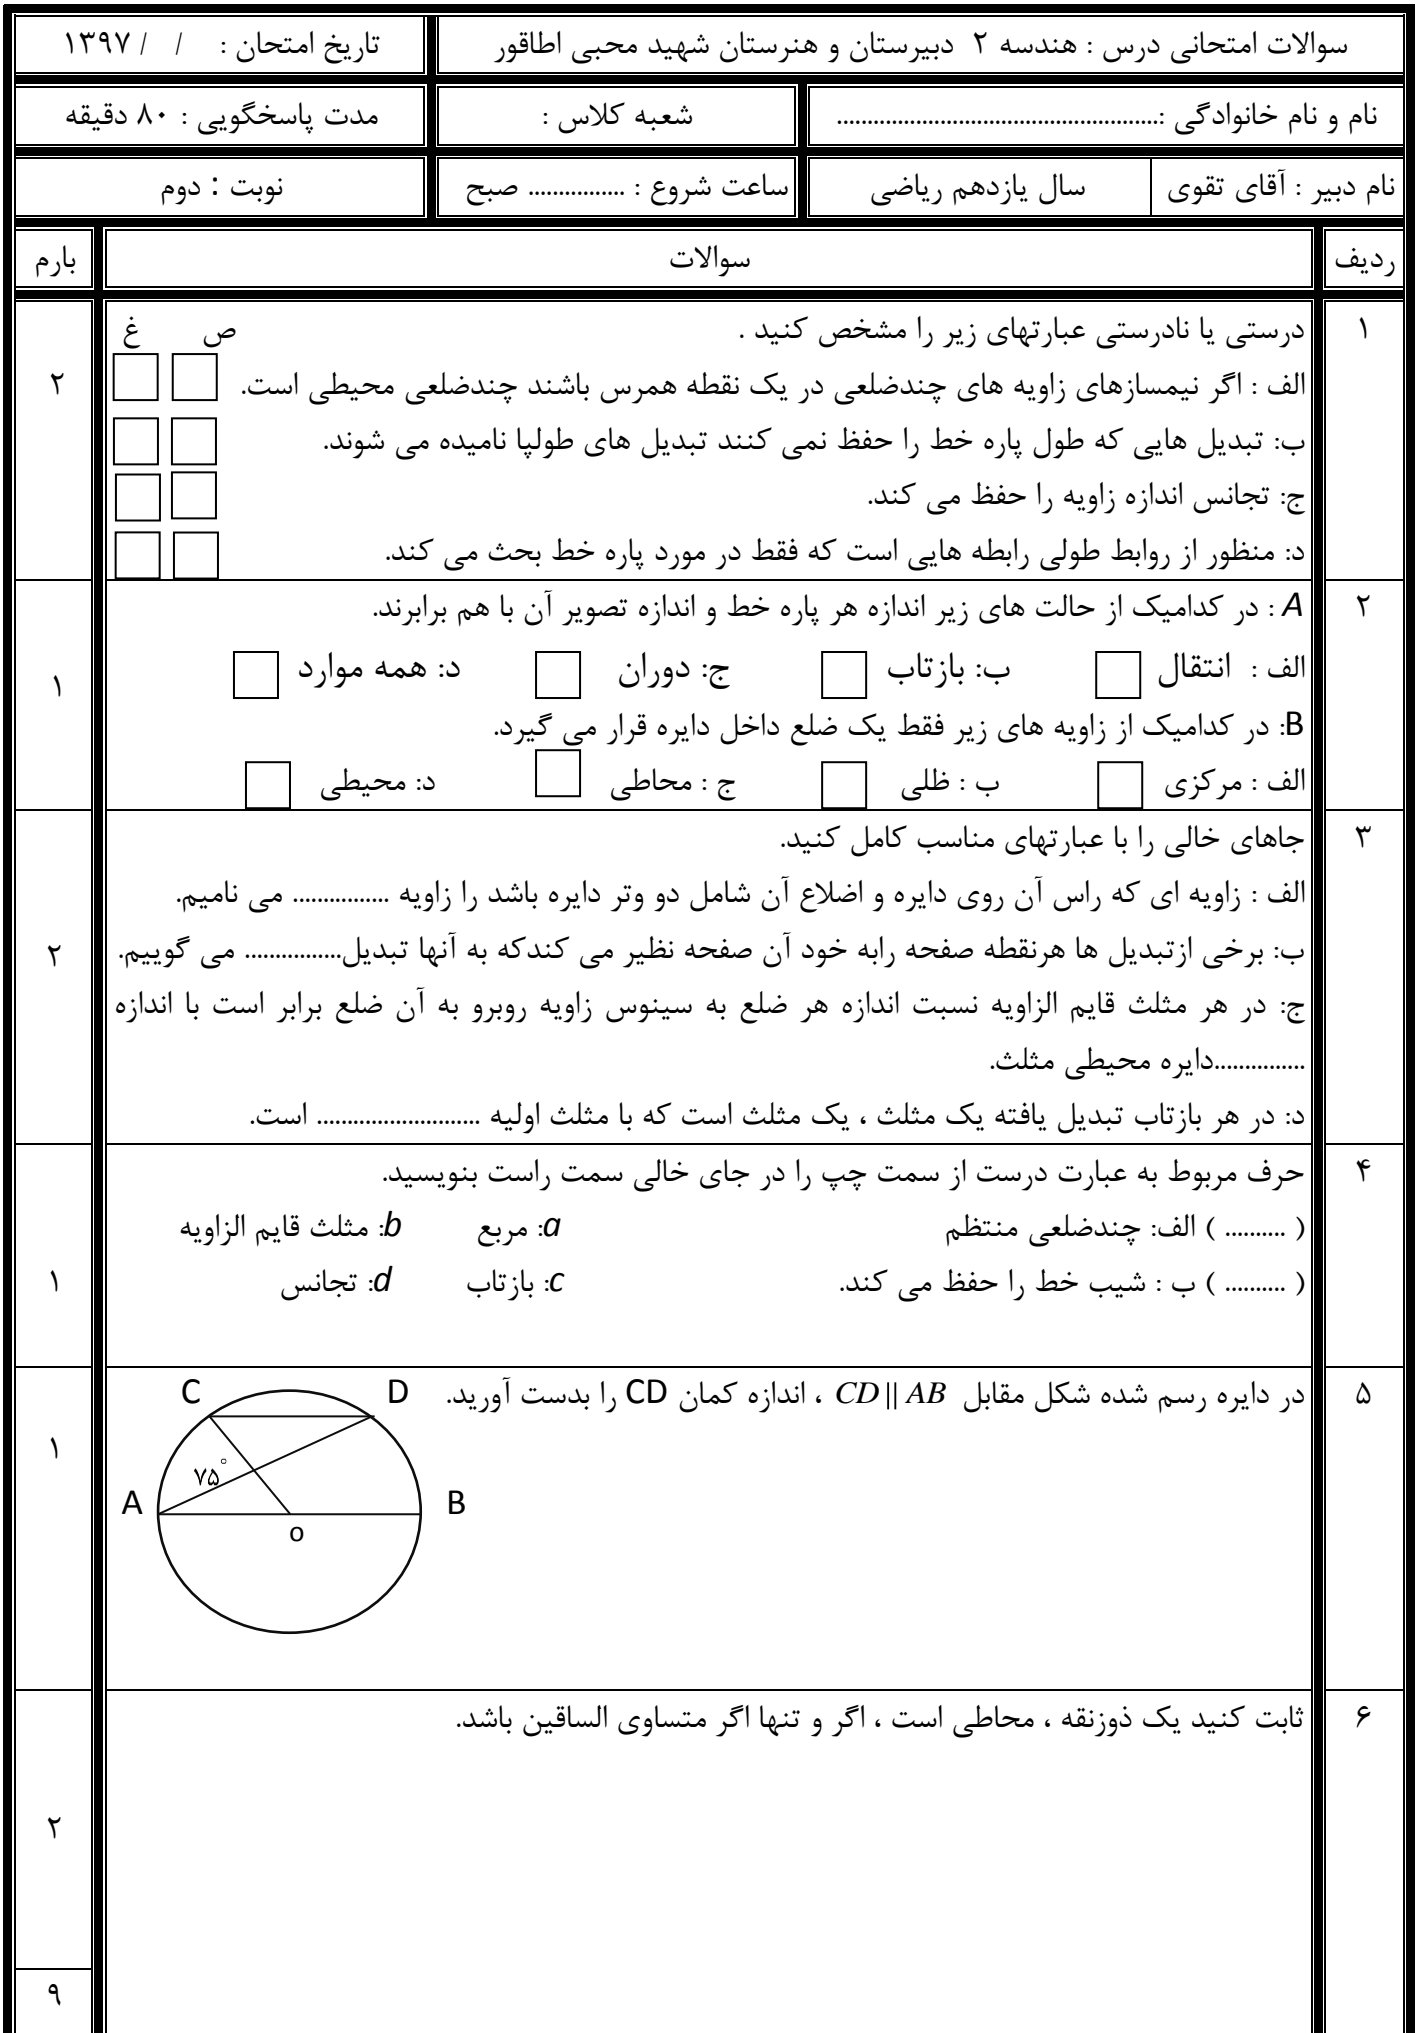 سوالات امتحانی درس : هندسه ۲ دبیرستان و هنرستان شهید محبی اطاقور
تاریخ امتحان : / / ۱۳۹۷
نام و نام خانوادگی :.....................................................
شعبه کلاس :
مدت پاسخگویی : ۸۰ دقیقه
نام دبیر : آقای تقوی
سال یازدهم ریاضی
ساعت شروع : ................ صبح
نوبت : دوم
ردیف
سوالات
بارم
۱
درستی یا نادرستی عبارتهای زیر را مشخص کنید . ص غ
الف : اگر نیمسازهای زاویه های چندضلعی در یک نقطه همرس باشند چندضلعی محیطی است.
۲
ب: تبدیل هایی که طول پاره خط را حفظ نمی کنند تبدیل های طولپا نامیده می شوند.
ج: تجانس اندازه زاویه را حفظ می کند.
د: منظور از روابط طولی رابطه هایی است که فقط در مورد پاره خط بحث می کند.
۲
A : در کدامیک از حالت های زیر اندازه هر پاره خط و اندازه تصویر آن با هم برابرند.
الف : انتقال ب: بازتاب ج: دوران د: همه موارد
۱
B: در کدامیک از زاویه های زیر فقط یک ضلع داخل دایره قرار می گیرد.
الف : مرکزی ب : ظلی ج : محاطی د: محیطی
۳
جاهای خالی را با عبارتهای مناسب کامل کنید.
الف : زاویه ای که راس آن روی دایره و اضلاع آن شامل دو وتر دایره باشد را زاویه ................ می نامیم.
ب: برخی ازتبدیل ها هرنقطه صفحه رابه خود آن صفحه نظیر می کندکه به آنها تبدیل................ می گوییم.
۲
ج: در هر مثلث قایم الزاویه نسبت اندازه هر ضلع به سینوس زاویه روبرو به آن ضلع برابر است با اندازه
...............دایره محیطی مثلث.
د: در هر بازتاب تبدیل یافته یک مثلث ، یک مثلث است که با مثلث اولیه ........................... است.
۴
حرف مربوط به عبارت درست از سمت چپ را در جای خالی سمت راست بنویسید.
( .......... ) الف: چندضلعی منتظم a: مربع b: مثلث قایم الزاویه
( .......... ) ب : شیب خط را حفظ می کند. c: بازتاب d: تجانس
۱
۵
در دایره رسم شده شکل مقابل CD || AB ، اندازه کمان CD را بدست آورید.
C D
۱
۷۵°
A B
o
۶
ثابت کنید یک ذوزنقه ، محاطی است ، اگر و تنها اگر متساوی الساقین باشد.
۲
۹